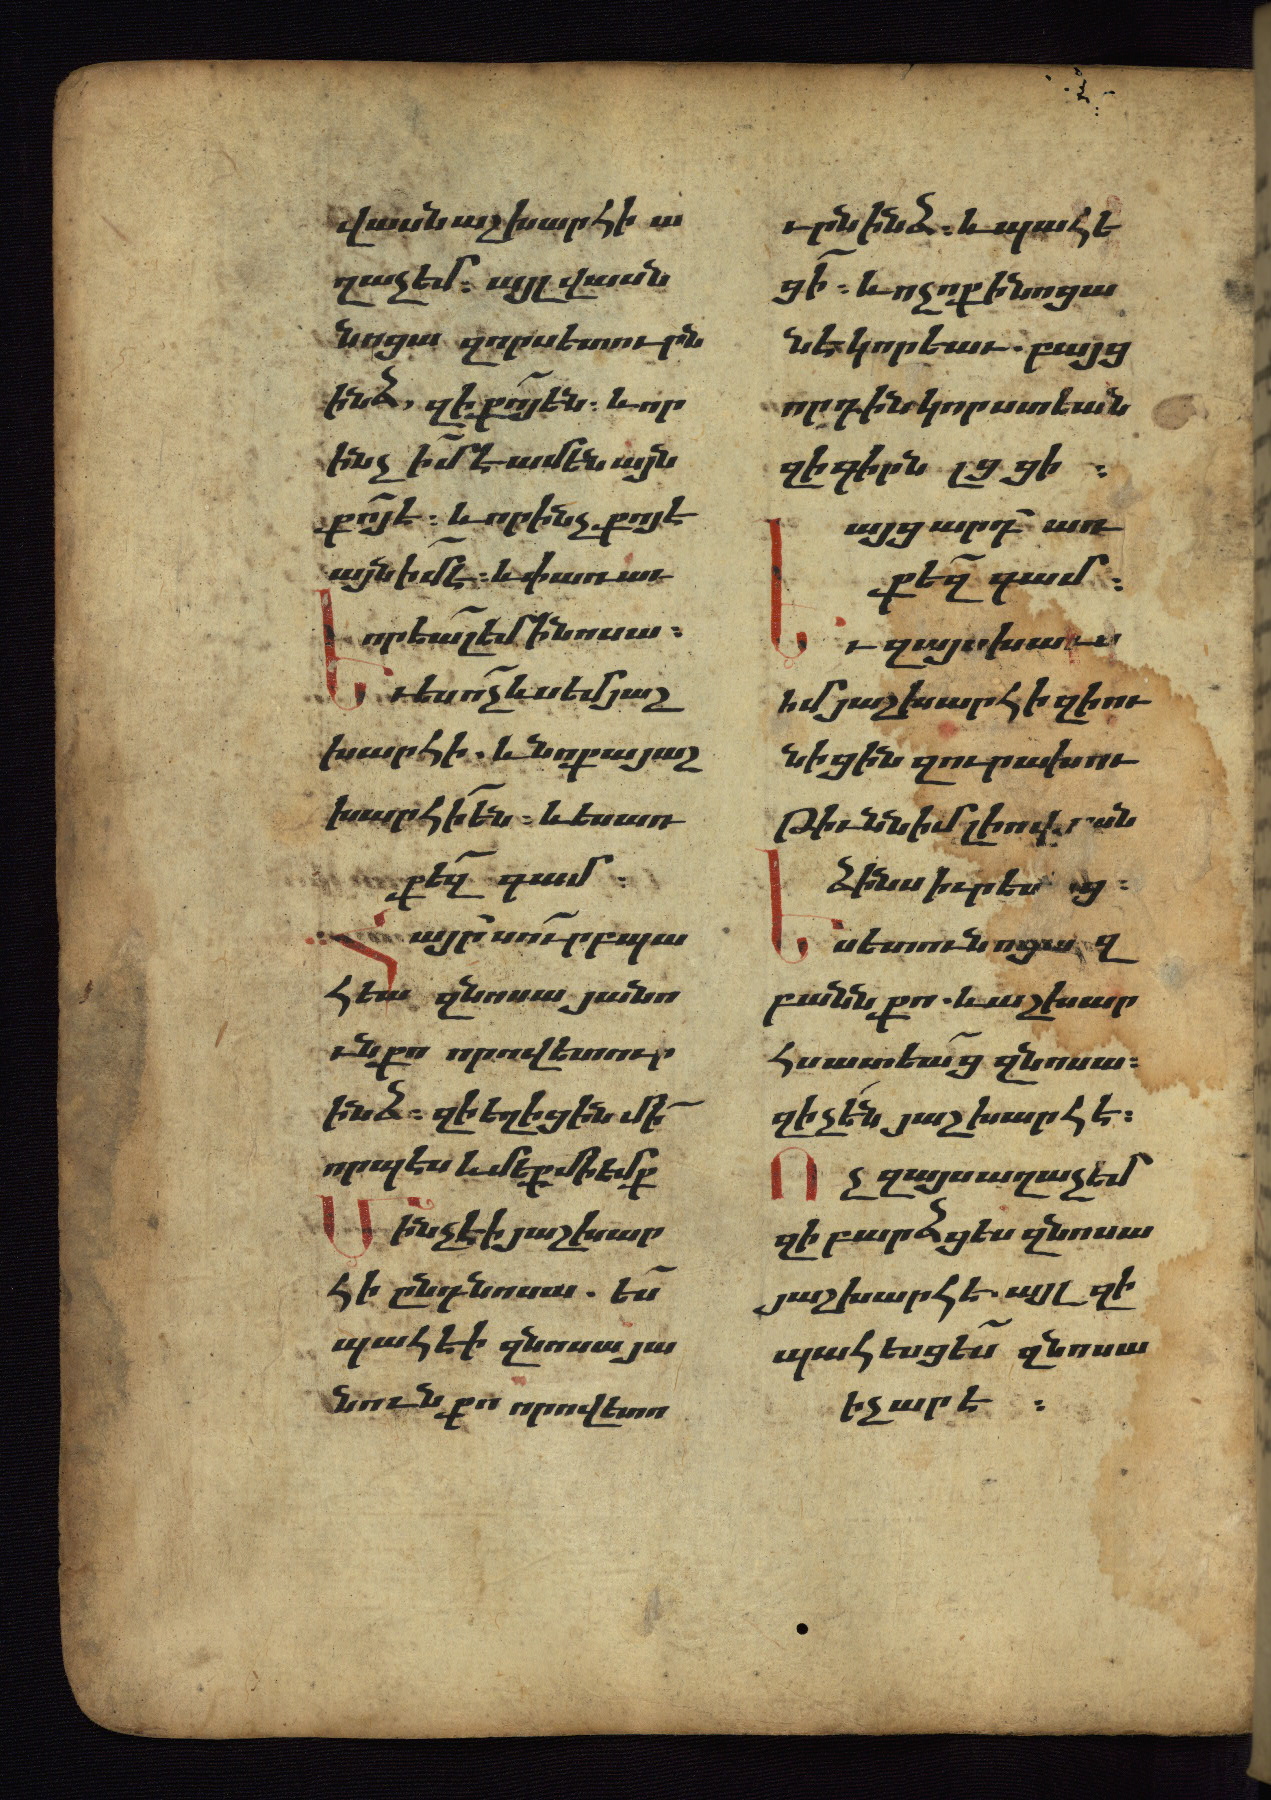 վասն աշխարհի ա
ղաչեմ։ այլ վասն
նոցա զորս ետուրն
ինձ, զի քո՜յ են։ և որ
ինչ ի՜մ է ամէն այն
քո՜յ է։ և որ ինչ քոյ է
այն ի՜մ է։ և փառաւ
որեա՜լ եմ ի նոսա։
Եւ ես ո՜չ ևս եմ յաշ
խարհի. և նոքա յաշ
խարհի՜ են։ և ես առ
քե՜զ գամ։
Հայր սո՜ւրբ պա
հեա զնոսա յանո
ւն քո որով ետուր
ինձ։ զի եղիցին մի՜
որպէս և մեք մի եմք
Մինչ էի յաշխար
հի ընդ նոսա. ե՜ս
պահէի զնոսա յա
նուն քո որով ետո
ւրն ինձ։ և պահե
ցի՜։ և ոչ ոք ի նոցա
նէ կորեաւ. բայց
որդին կորստեան
զի գիրն լցցի։
Եայց արդ առ
քե՜զ գամ։
Եւ զայս խաւս
իմ յաշխարհի զի ու
նիցին զուրախու
թիւնն իմ լիով
յանձինս իւրես
Ես ետու նոցա զ
բանն քո. և աշխար
հս ատեա՜ց զնոսա։
զի չե՜ն յաշխարհէ։
Ոչ զայս աղաչեմ
զի բարձցես զնոսա
յաշխարհէ. այլ զի
պահեսցե՜ս զնոսա
ի չարէ։